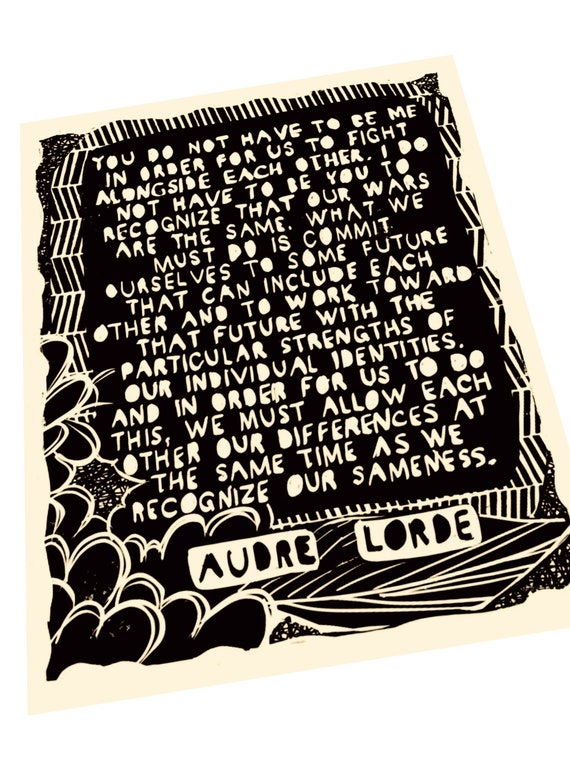 YOU DO NOT HAVE TO BE ME
IN ORDER FOR US TO FIGHT
ALONGSIDE EACH OTHER. I DO
NOT HAVE TO BE YOU TO
RECOGNIZE THAT OUR WARS
ARE THE SAME. WHAT WE
MUST DO IS COMMIT
OURSELVES TO SOME FUTURE
THAT CAN INCLUDE EACH
OTHER AND TO WORK TOWARD
THAT FUTURE WITH THE
PARTICULAR STRENGTHS OF
OUR INDIVIDUAL IDENTITIES.
AND IN ORDER FOR US TO DO
THIS, WE MUST ALLOW EACH
OTHER OUR DIFFERENCES AT
THE SAME TIME AS WE
RECOGNIZE OUR SAMENESS.
AUDRE LORDE